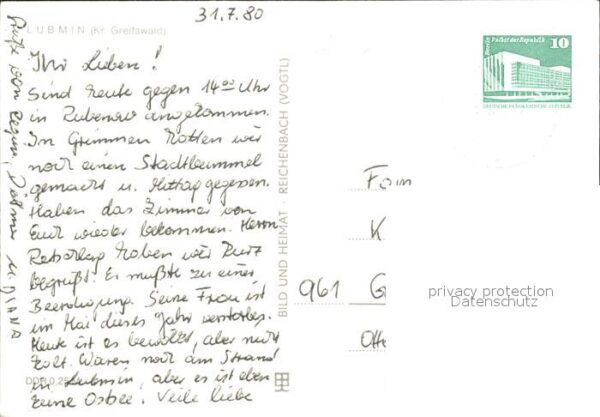 31.7.80
LUBMIN (Kr. Greifswald)
Ihr Lieben!
Sind heute gegen 14⁰⁰ Uhr
in Rubenow angekommen.
In Grimmen hatten wir
noch einen Stadtbummel
gemacht u. Mittag gegessen.
Haben das Zimmer von
Euch wieder bekommen. Herrn
haben wir kurz
begrüßt. Er mußte zu einer
Beerdigung. Seine Frau ist
im Mai dieses Jahr verstorben.
Heute ist es bewölkt, aber nicht
kalt. Waren noch am Strand
in Lubmin, aber es ist eben
keine Ostsee. Viele liebe
Grüße von Regina,
u. DIANA
DDR 0,25
BILD UND HEIMAT · REICHENBACH (VOGTL)
Berlin Palast der Republik
10
DEUTSCHE DEMOKRATISCHE REPUBLIK
Fam
K
961 G
Otte
privacy protection
Datenschutz